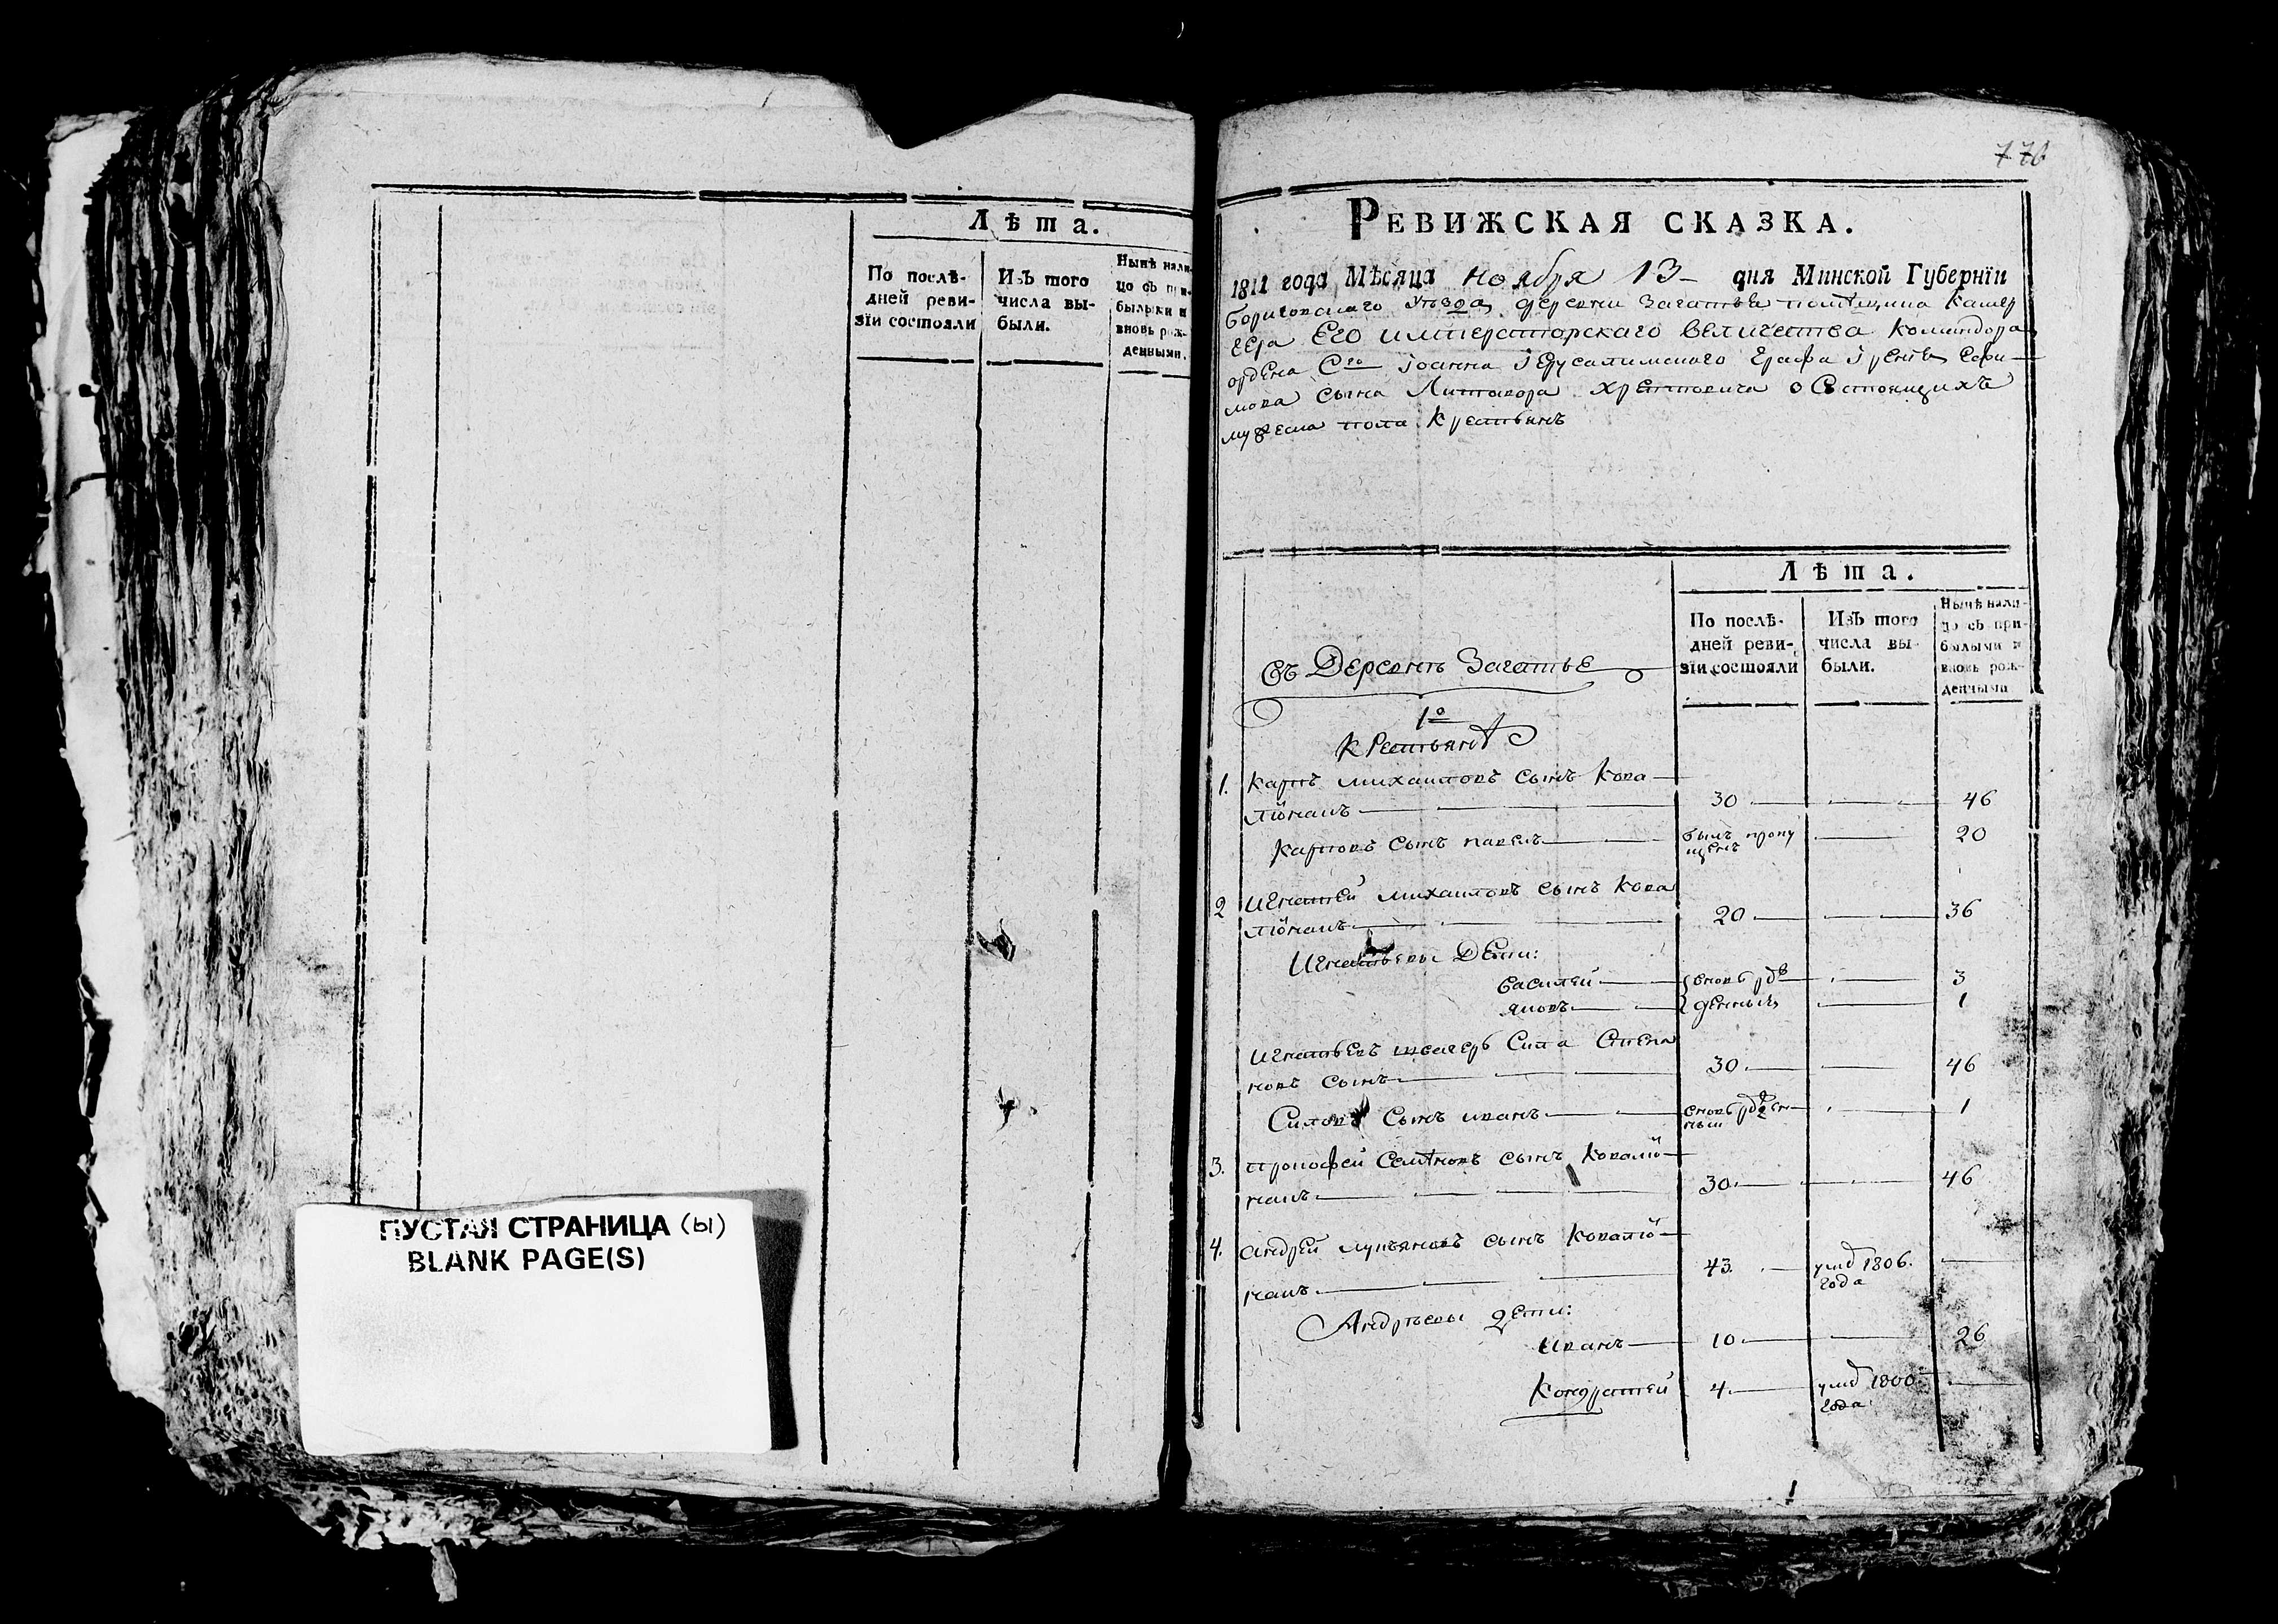 Лѣта.
По послѣ-
дней реви-
зіи состояли
Изъ того
числа вы-
были.
Нынѣ нали-
цо съ при-
былыми и
вновь рож-
денными.
ПУСТАЯ СТРАНИЦА (ы)
BLANK PAGE(S)
776
Ревижская сказка.
1811 года Мѣсяца ноября 13 дня Минской Губернїи
Борисовскаго уѣзда деревни Загатья помѣщика Камер
гера Его императорскаго величества Командора
ордена Сго Іоанна Іерусалимскаго Графа Ірения Ефи-
мова сына Литавора Хрептовича о Состоящихъ
мужеска пола Крестьянъ
Лѣта.
По послѣ-
дней реви-
зіи состояли
Изъ того
числа вы-
были.
Нынѣ нали-
цо съ при-
былыми и
вновь рож-
денными
Въ Деревнѣ Загатье
1º
Крестьянѣ
1. Карпъ михаиловъ сынъ Кова
люнакъ 30 46
Карповъ сынъ павелъ былъ пропу 20
щенъ
2 Игнатей михаиловъ сынъ Кова
люнакъ 20 36
Игнатьевы Дети:
василей вновь рож 3
яковъ денныя 1
Игнатьевъ швагеръ Сила Степа
новъ сынъ 30 46
Силовъ Сынъ иванъ вновь рожден 1
ныи
3. прокофей Семѣновъ сынъ Ковалю
накъ 30 46
4. андрей лукъяновъ сынъ Ковалю
накъ 43 умер 1806.
года
Андрѣевы дети:
иванъ 10 26
Кондратей 4 умер 1800
года